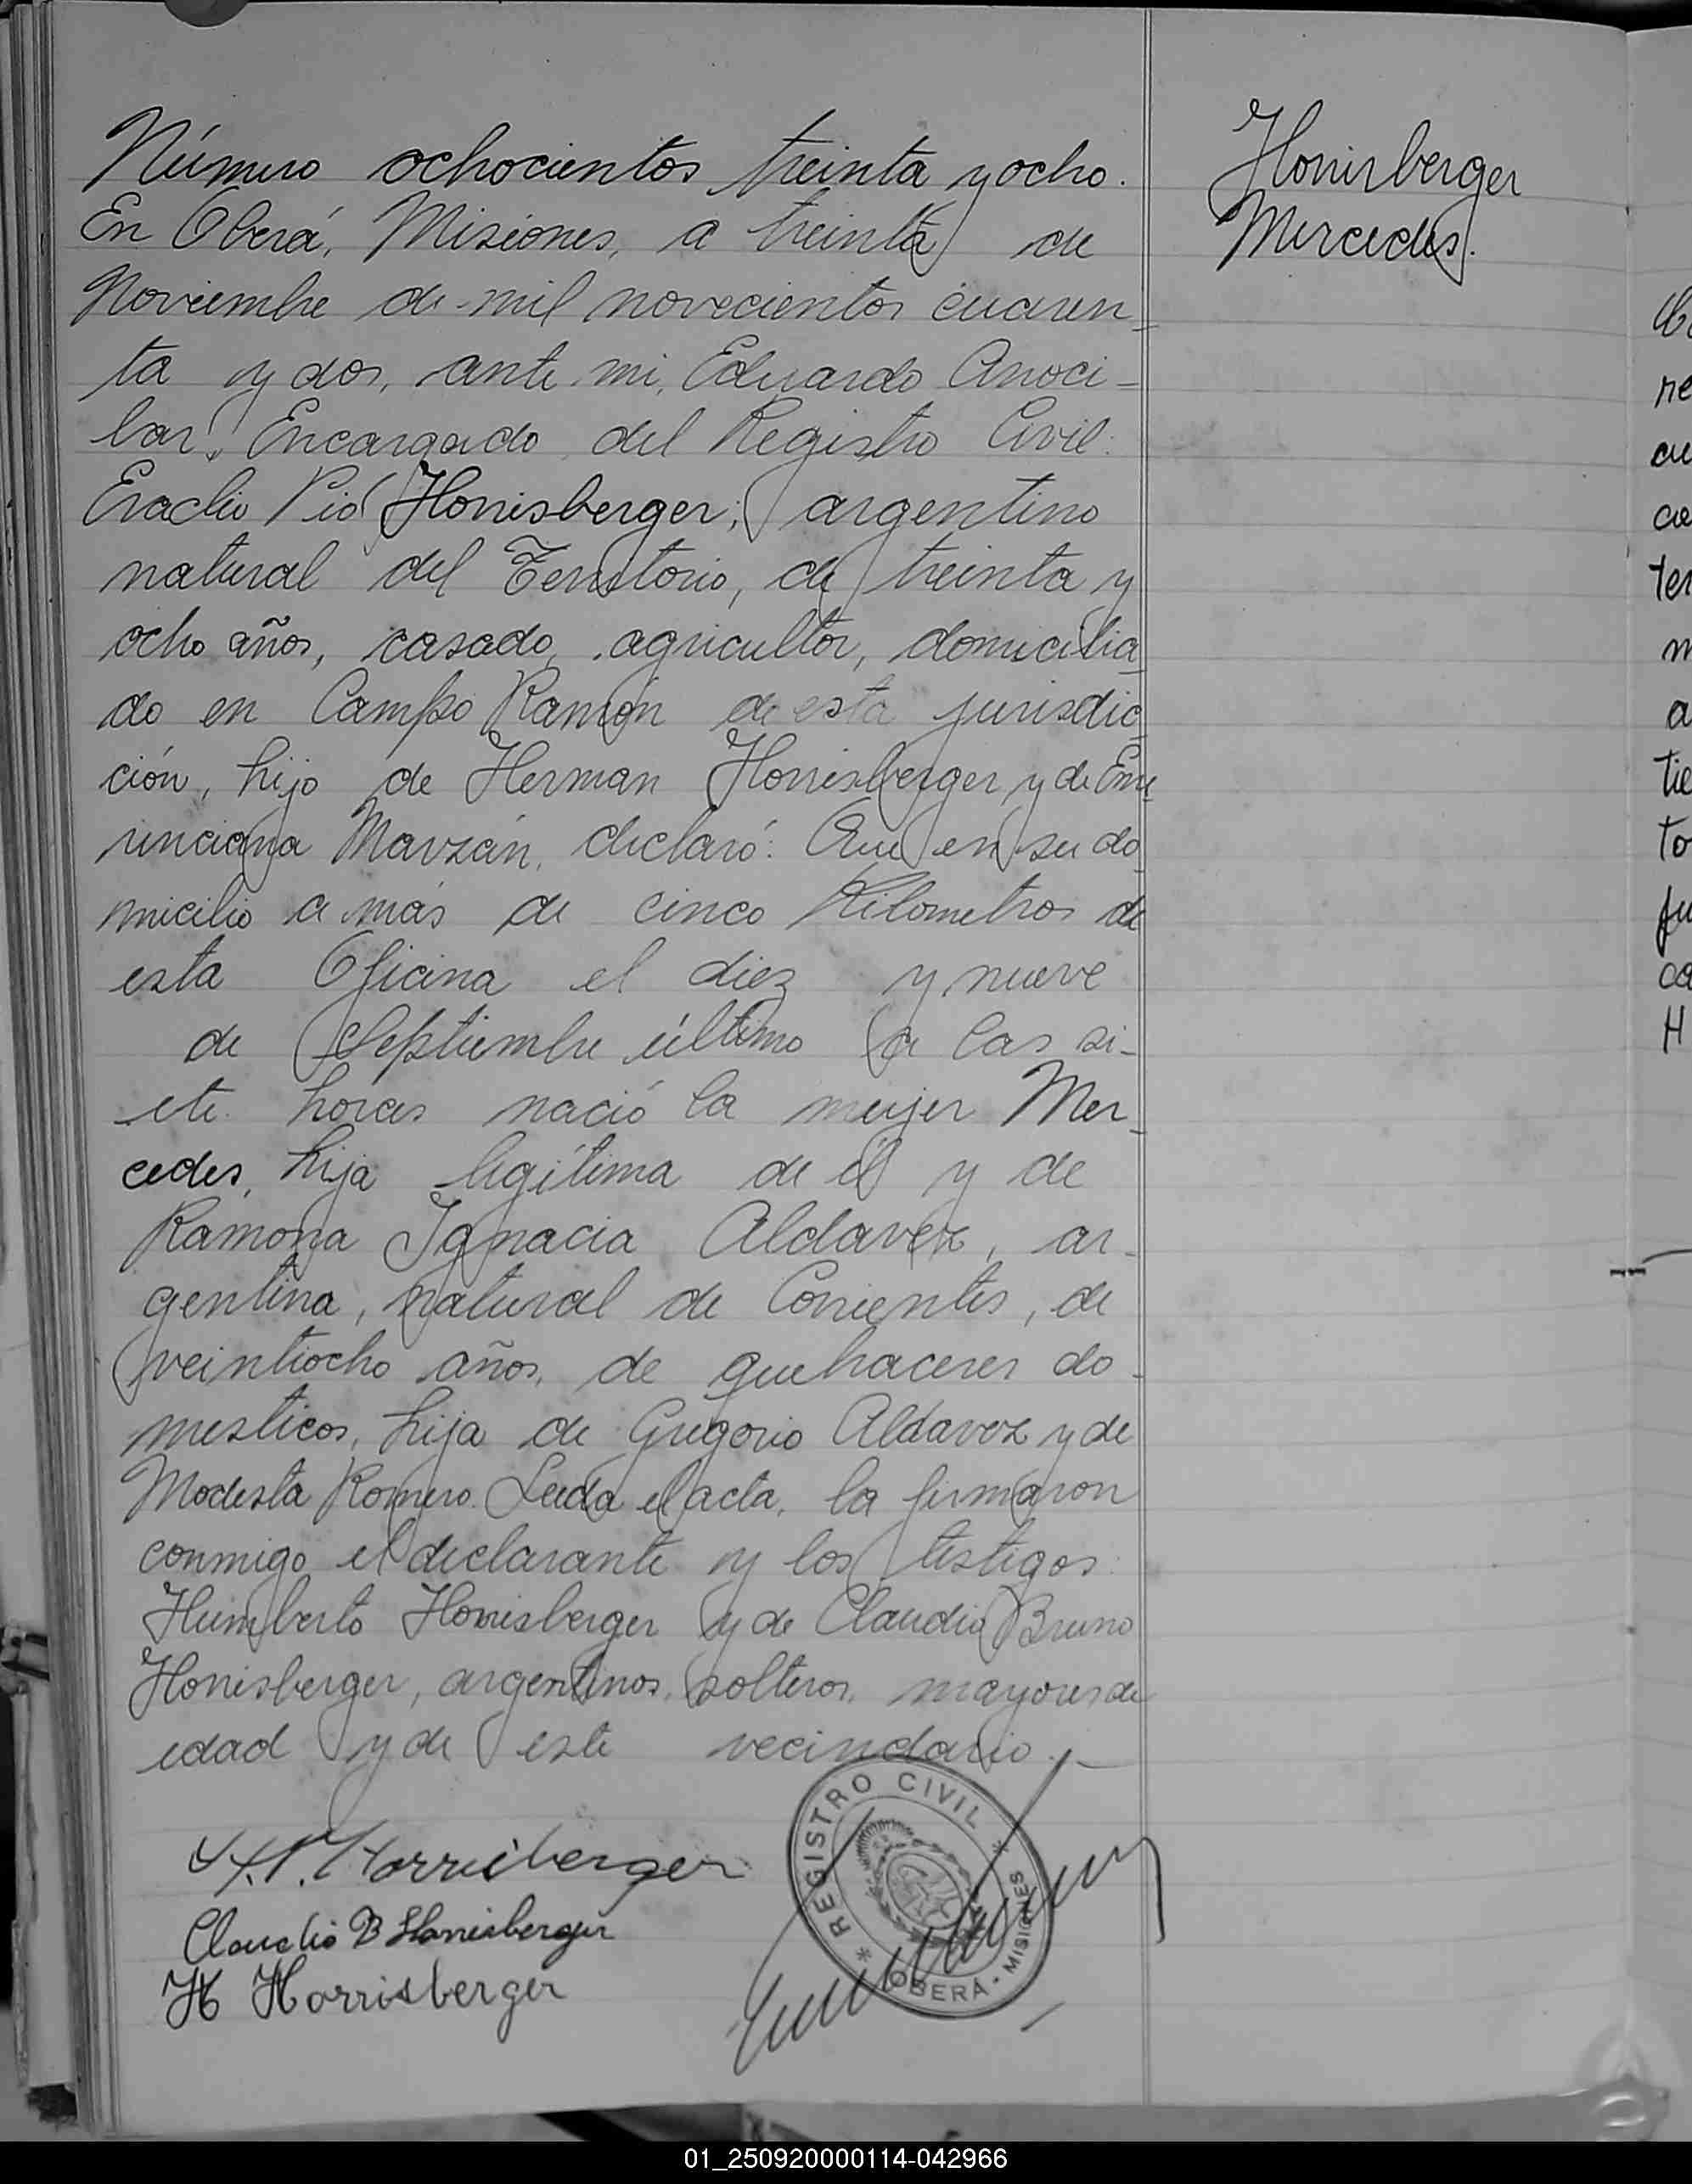 Número ochocientos treinta y ocho.
En Oberá, Misiones, a treinta de
Noviembre de mil novecientos cuaren-
ta y dos, ante mi, Eduardo Anoci-
bar, Encargado del Registro Civil:
Eraclio Pio Horrisberger, argentino
natural del Territorio, de treinta y
ocho años, casado, agricultor, domicilia
do en Campo Ramón de esta jurisdic
ción, hijo de Herman Horrisberger y de Eme
renciana Marzán, declaró: Que en su do
micilio a más de cinco Kilometros de
esta Oficina el diez y nueve
de Septiembre último a las si-
ete horas nació la mujer Mer-
cedes, hija legítima de él y de
Ramona Ignacia Aldavez, ar-
gentina, natural de Corrientes, de
veintiocho años, de quehaceres do-
mesticos, hija de Gregorio Aldavez y de
Modesta Romero. Leida el acta, la firmaron
conmigo el declarante y los testigos:
Humberto Horrisberger y de Claudio Bruno
Horrisberger, argentinos, solteros, mayores de
edad y de este vecindario.-
Horrisberger
Mercedes.
Horrisberger
Claudio B Horrisberger
H Horrisberger
REGISTRO CIVIL
OBERÁ - MISIONES
01_250920000114-042966